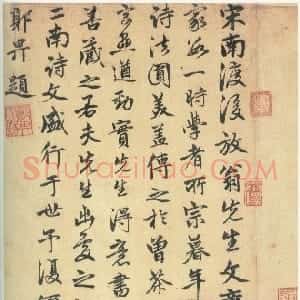 宋南渡後放翁先生文章
家為一時學者所宗暮年
詩法圓美蓋傳之於曾茶
道勁實先生得意書
善藏之若夫先生出處之
二南詩文盛行于世予復
鄭昇題
Shufaziliao.com